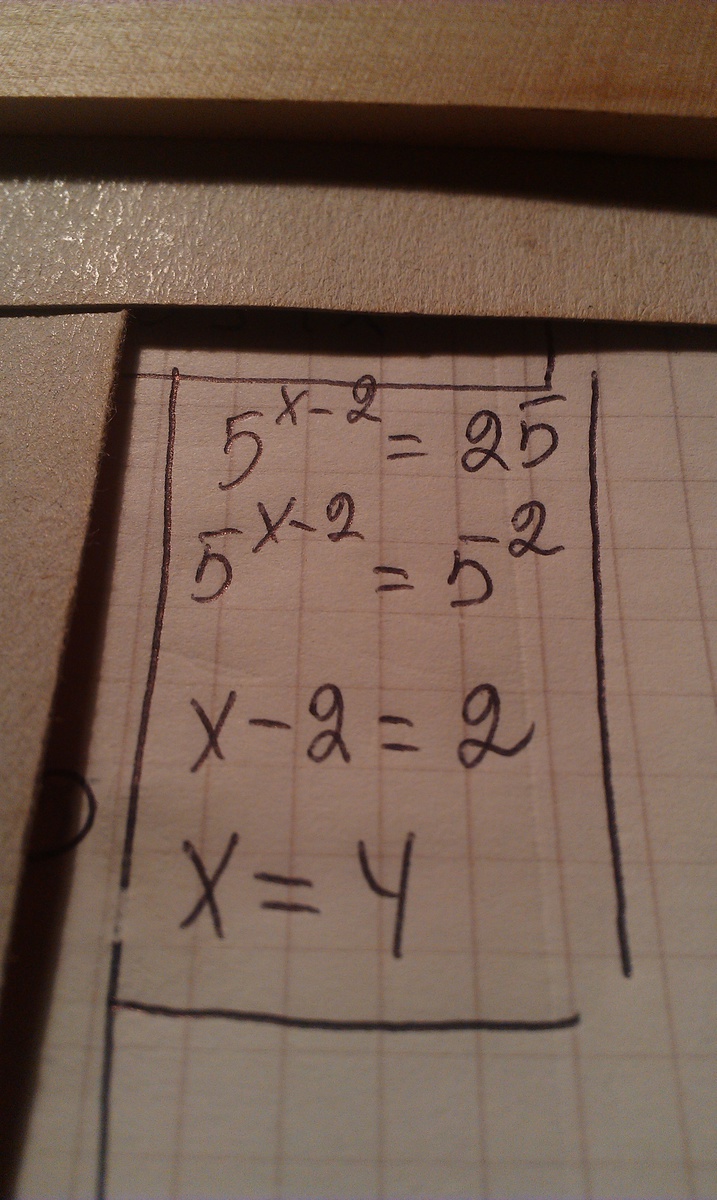 5^{x-2} = 25
5^{x-2} = 5^2
x-2=2
x=4